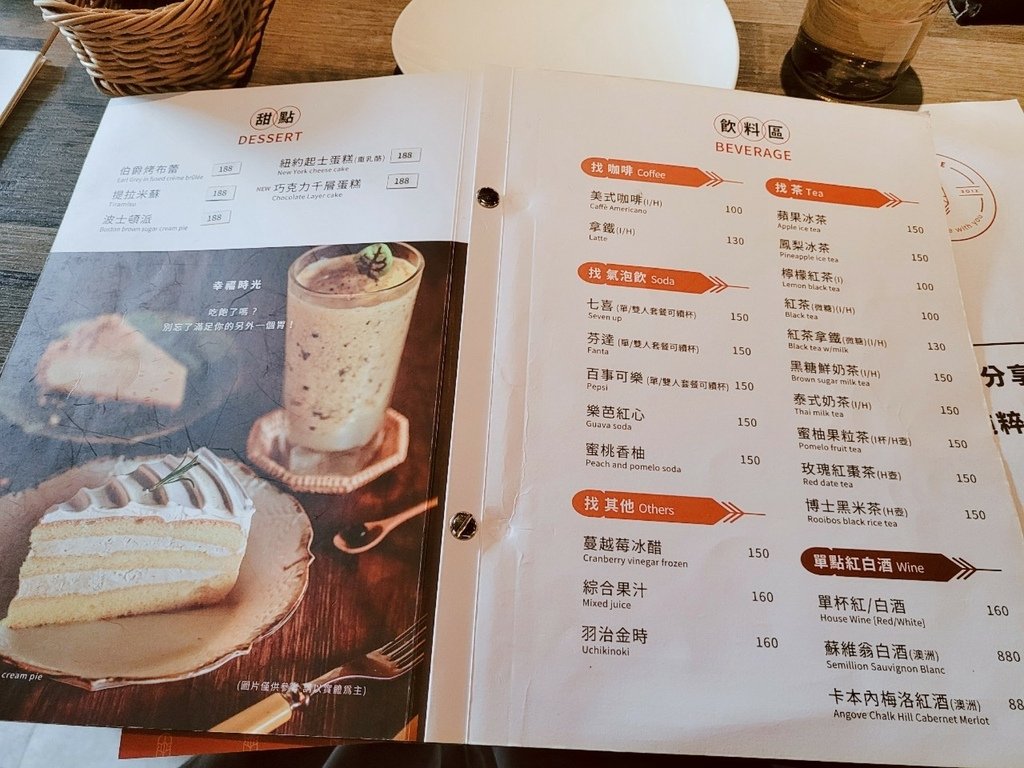 甜點
DESSERT
伯爵烤布蕾 188
Earl Grey in fused crème brûlée
提拉米蘇 188
Tiramisu
波士頓派 188
Boston brown sugar cream pie
紐約起士蛋糕(南乳酪) 188
New York cheese cake
NEW 巧克力千層蛋糕 188
Chocolate Layer cake
幸福時光
吃飽了嗎？
別忘了滿足你的另外一個胃！
cream pie
(圖片僅供參考 請以實體為主)
飲料區
BEVERAGE
找 咖啡 Coffee
美式咖啡(I/H) 100
Caffè Americano
拿鐵(I/H) 130
Latte
找 氣泡飲 Soda
七喜 (單/雙人套餐可續杯) 150
Seven up
芬達 (單/雙人套餐可續杯) 150
Fanta
百事可樂 (單/雙人套餐可續杯) 150
Pepsi
樂芭紅心 150
Guava soda
蜜桃香柚 150
Peach and pomelo soda
找 其他 Others
蔓越莓冰醋 150
Cranberry vinegar frozen
綜合果汁 160
Mixed juice
羽治金時 160
Uchikinoki
找 茶 Tea
蘋果冰茶 150
Apple ice tea
鳳梨冰茶 150
Pineapple ice tea
檸檬紅茶(I) 100
Lemon black tea
紅茶(微糖)(I/H) 100
Black tea
紅茶拿鐵(微糖)(I/H) 130
Black tea w/milk
黑糖鮮奶茶(I/H) 150
Brown sugar milk tea
泰式奶茶(I/H) 150
Thai milk tea
蜜柚果粒茶(I杯/H壺) 150
Pomelo fruit tea
玫瑰紅棗茶(H壺) 150
Red date tea
博士黑米茶(H壺) 150
Rooibos black rice tea
單點紅白酒 Wine
單杯紅/白酒 160
House Wine [Red/White]
蘇維翁白酒(澳洲) 880
Semillion Sauvignon Blanc
卡本內梅洛紅酒(澳洲) 88
Angove Chalk Hill Cabernet Merlot
2012
with you
分享
粹